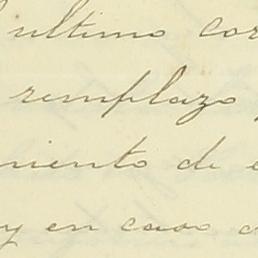 ultimo cor
remplazo
niento de e
y en caso d